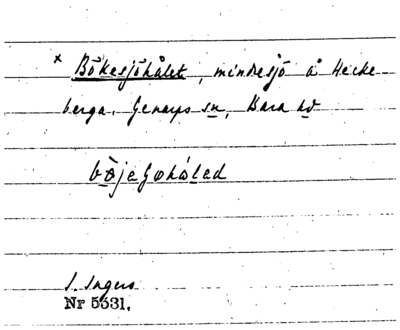 × Bökesjöhålet, mindre sjö å Hecke-
berga. Genarps sn, Bara hd
bö̀jeɕøhåled
S. Ingers
Nr 5531.